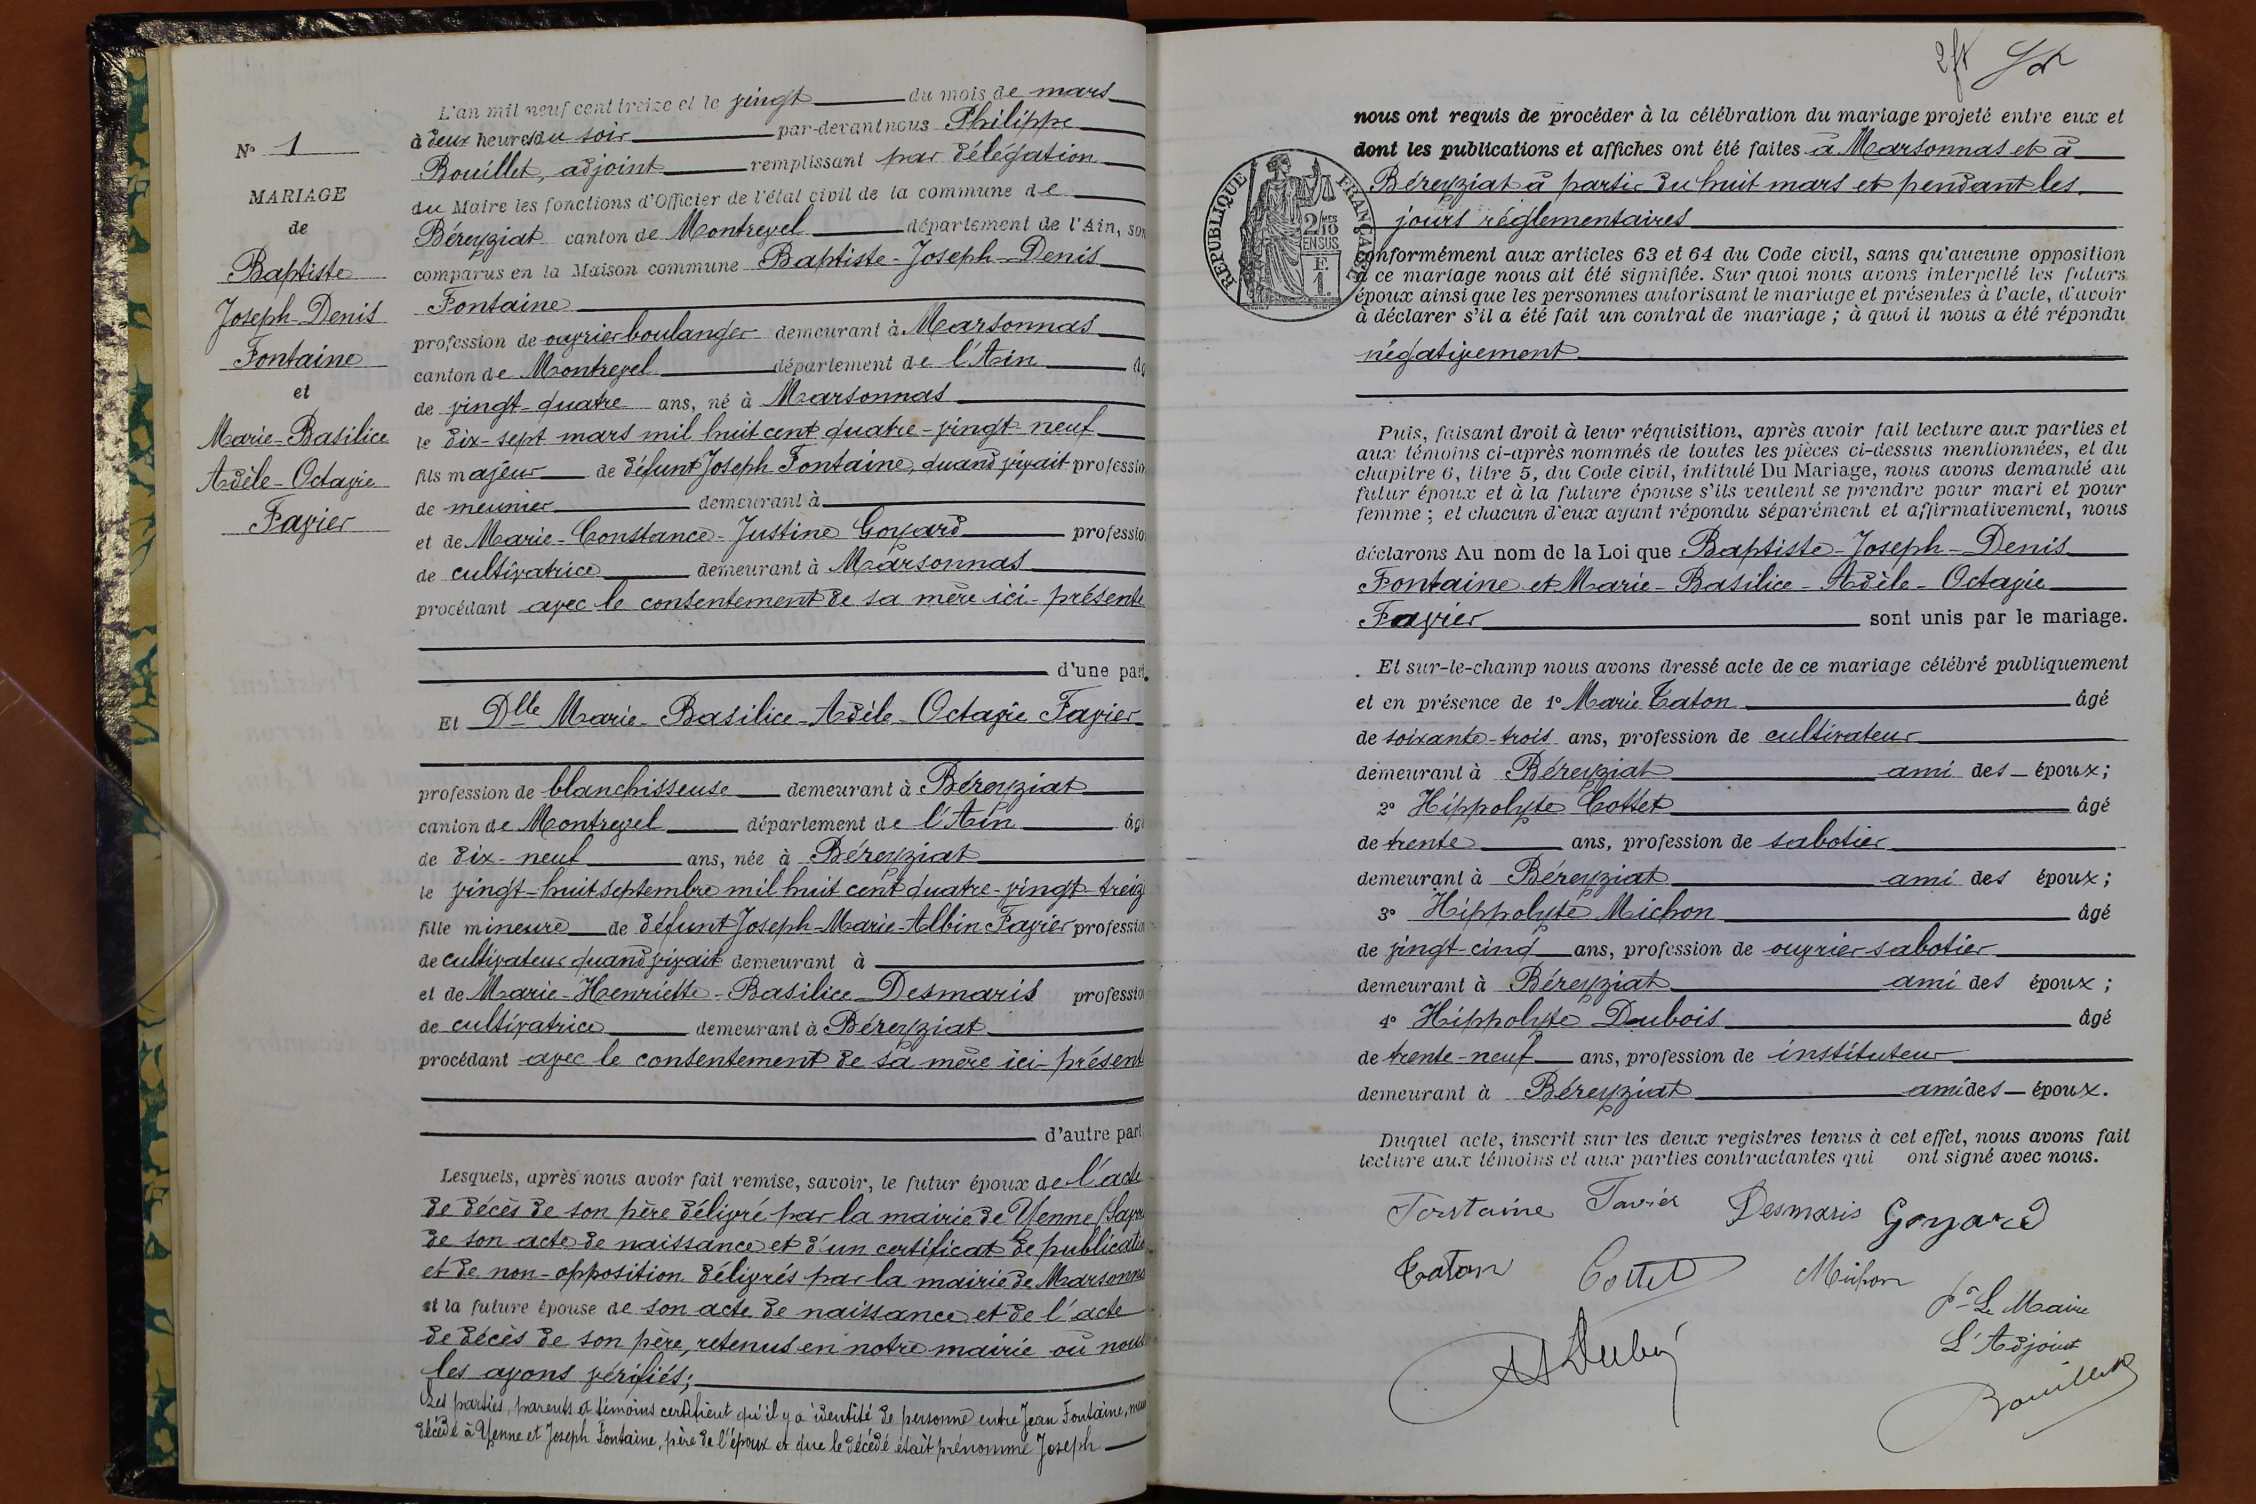 N° 1
MARIAGE
de
Baptiste
Joseph-Denis
Fontaine
et
Marie-Basilice
Adèle-Octavie
Favier
L'an mil neuf cent treize et le vingt du mois de mars
à deux heures du soir par-devant nous Philippe
Bouillet, adjoint remplissant par délégation
du Maire les fonctions d'Officier de l'état civil de la commune de
Béreyziat canton de Montrevel département de l'Ain, son
comparus en la Maison commune Baptiste-Joseph-Denis
Fontaine
profession de ouvrier boulanger demeurant à Marsonnas
canton de Montrevel département de l'Ain âg
de vingt-quatre ans, né à Marsonnas
le dix-sept mars mil huit cent quatre-vingt-neuf
fils majeur de défunt Joseph Fontaine, quand vivait professio
de meunier demeurant à
et de Marie-Constance-Justine Goyard professio
de cultivatrice demeurant à Marsonnas
procédant avec le consentement de sa mère ici-présente
d'une part.
Et Dlle Marie-Basilice-Adèle-Octavie Favier
profession de blanchisseuse demeurant à Béreyziat
canton de Montrevel département de l'Ain âgé
de dix-neuf ans, née à Béreyziat
le vingt-huit septembre mil huit cent quatre-vingt-treiz
fille mineure de défunt Joseph-Marie-Albin Favier professio
de cultivateur quand vivait demeurant à
et de Marie-Henriette-Basilice Desmaris professio
de cultivatrice demeurant à Béreyziat
procédant avec le consentement de sa mère ici-présent
d'autre part
Lesquels, après nous avoir fait remise, savoir, le futur époux de l'acte
de décès de son père délivré par la mairie de Yenne (Savoi
de son acte de naissance et d'un certificat de publicatio
et de non-opposition délivrés par la mairie de Marsonna
et la future épouse de son acte de naissance et de l'acte
de décès de son père, retenus en notre mairie où nous
les avons vérifiés;
Les parties, parents et témoins certifient qu'il y a identité de personne entre Jean Fontaine, meu
décédé à Yenne et Joseph Fontaine, père de l'époux et que le décédé était prénommé Joseph
2 ft
nous ont requis de procéder à la célébration du mariage projeté entre eux et
dont les publications et affiches ont été faites à Marsonnas et à
Béreyziat à partir du huit mars et pendant les
jours réglementaires
REPUBLIQUE FRANÇAISE
2/10 EN SUS
F. 1.
conformément aux articles 63 et 64 du Code civil, sans qu'aucune opposition
à ce mariage nous ait été signifiée. Sur quoi nous avons interpellé les futurs
époux ainsi que les personnes autorisant le mariage et présentes à l'acte, d'avoir
à déclarer s'il a été fait un contrat de mariage ; à quoi il nous a été répondu
négativement
Puis, faisant droit à leur réquisition, après avoir fait lecture aux parties et
aux témoins ci-après nommés de toutes les pièces ci-dessus mentionnées, et du
chapitre 6, titre 5, du Code civil, intitulé Du Mariage, nous avons demandé au
futur époux et à la future épouse s'ils veulent se prendre pour mari et pour
femme ; et chacun d'eux ayant répondu séparément et affirmativement, nous
déclarons Au nom de la Loi que Baptiste-Joseph-Denis
Fontaine et Marie-Basilice-Adèle-Octavie
Favier sont unis par le mariage.
Et sur-le-champ nous avons dressé acte de ce mariage célébré publiquement
et en présence de 1° Marie Caton âgé
de soixante-trois ans, profession de cultivateur
demeurant à Béreyziat ami des époux;
2° Hippolyte Cottet âgé
de trente ans, profession de sabotier
demeurant à Béreyziat ami des époux ;
3° Hippolyte Michon âgé
de vingt-cinq ans, profession de ouvrier sabotier
demeurant à Béreyziat ami des époux ;
4° Hippolyte Dubois âgé
de trente-neuf ans, profession de instituteur
demeurant à Béreyziat ami des époux.
Duquel acte, inscrit sur les deux registres tenus à cet effet, nous avons fait
lecture aux témoins et aux parties contractantes qui ont signé avec nous.
Fontaine Favier Desmaris Goyard
Caton Cottet Michon
Pr Le Maire
L'Adjoint
Bouillet